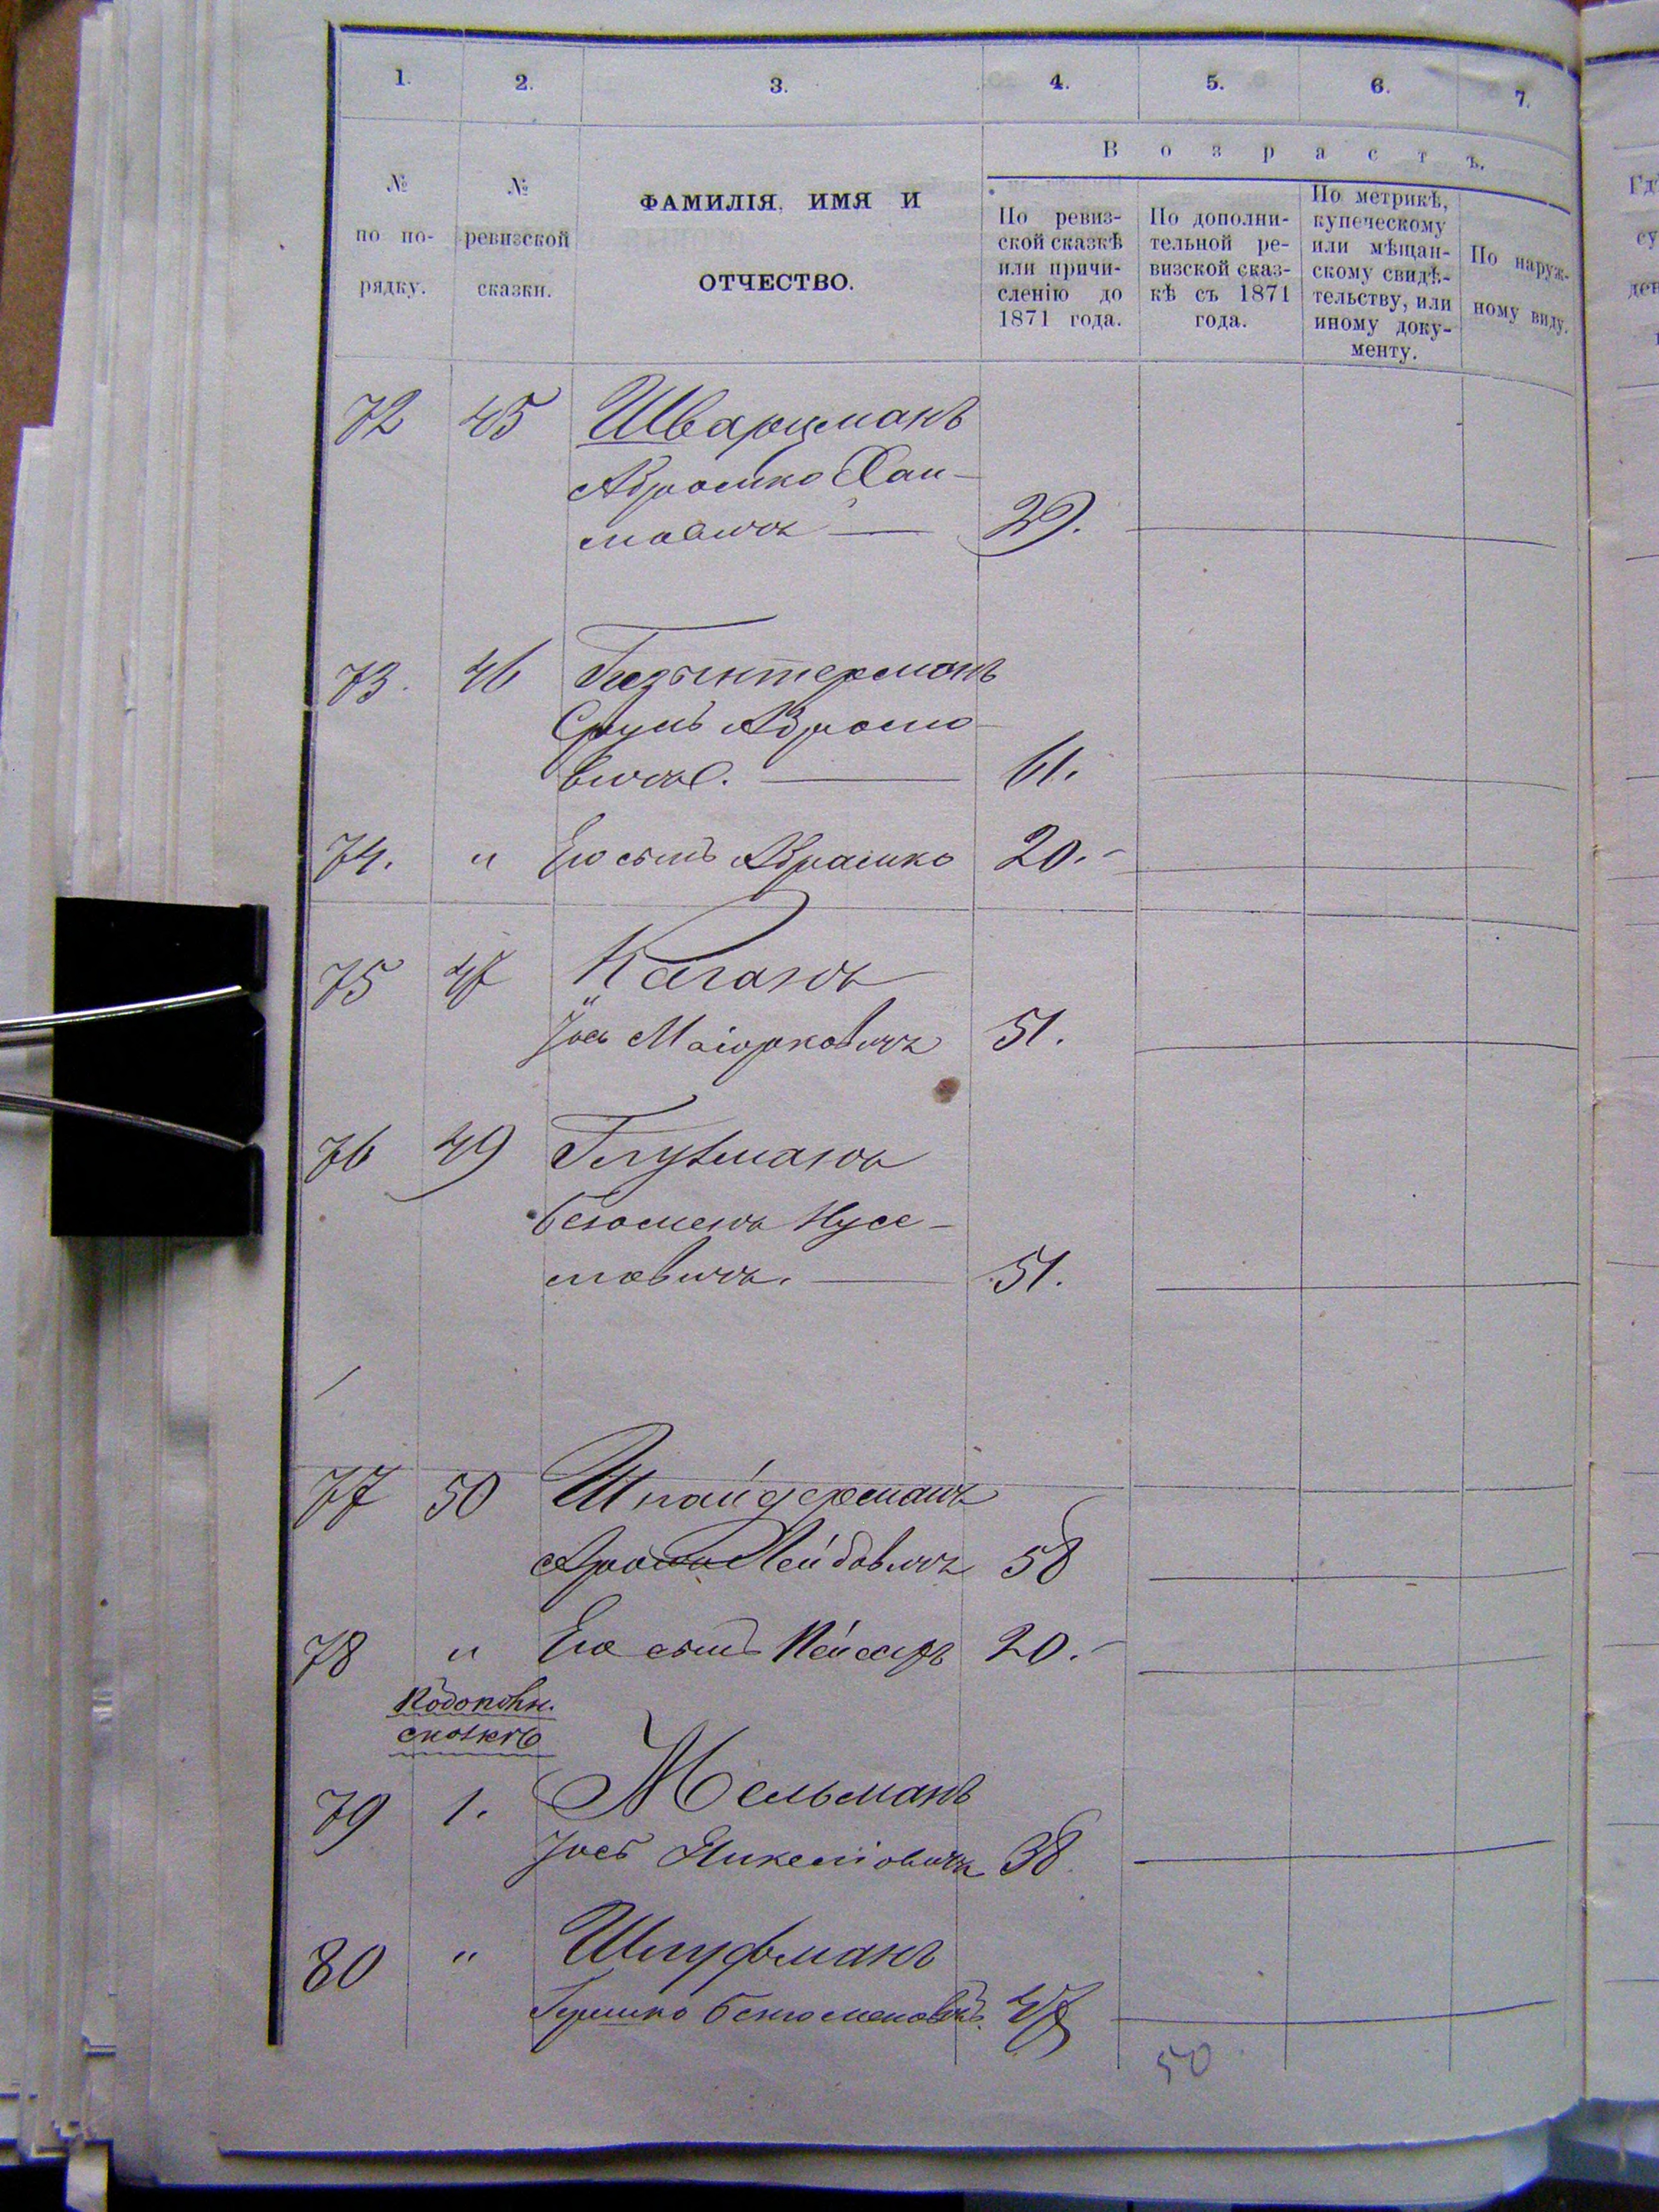 1. 2. 3. 4. 5. 6. 7.
В о з р а с т ъ.
№ по по- рядку.
№ ревизской сказки.
ФАМИЛІЯ, ИМЯ И
ОТЧЕСТВО.
По ревиз-
ской сказкѣ
или причи-
сленію до
1871 года.
По дополни-
тельной ре-
визской сказ-
кѣ съ 1871
года.
По метрикѣ,
купеческому
или мѣщан-
скому свидѣ-
тельству, или
иному доку-
менту.
По наруж-
ному виду.
72 45 Шварцманъ
Аврошко Хаи-
мовичъ — 29.
73. 46
Сруль Авромо-
вичъ. — 61.
74. " Его сынъ Аврашко 20.-
75 47 Каганъ
Іось Маіорковичъ 51.
76 49 Глузманъ
Беюменъ Нусе-
мовичъ. — 51.
77 50 Шнайдерманъ
Лейбовичъ 58
78 " Его сынъ Пейсахъ 20.-
По дополн.
сказкѣ
79 1. Мельманъ
Іосъ 38
80 " Шлуфманъ
Гершко Бенюменов. 47
50
Гд
су